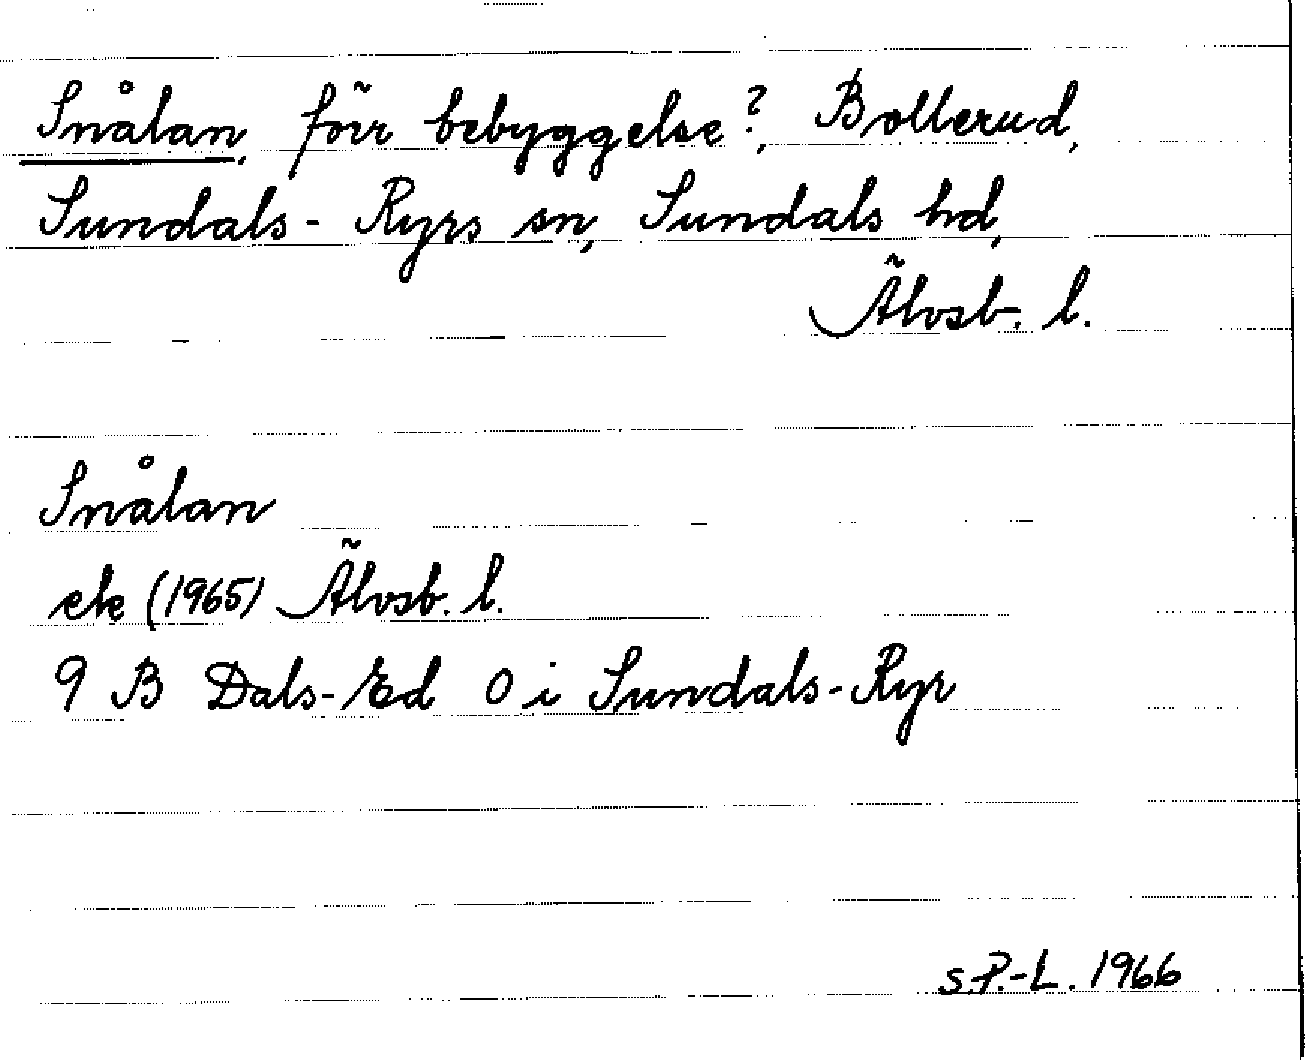 Snålan, förr bebyggelse?, Bollerud,
Sundals-Ryrs sn, Sundals hd,
Älvsb. l.
Snålan
ek (1965) Älvsb. l.
9 B Dals-Ed O i Sundals-Ryr
S.P.-L. 1966